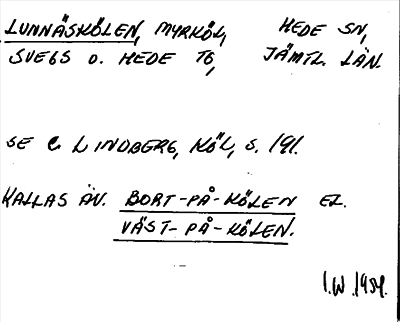 LUNNÄSKÖLEN, MYRKÖL, HEDE SN,
SVEGS O. HEDE TG, JÄMTL. LÄN.
SE C. LINDBERG, KÖL, S. 191.
KALLAS ÄV. BORT-PÅ-KÖLEN EL.
VÄST-PÅ-KÖLEN.
I.W. 1984.